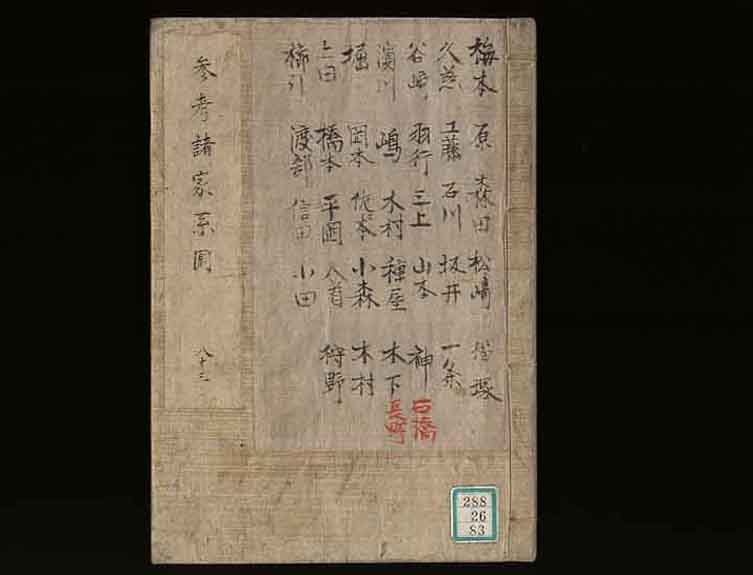 梅本 原 森田 松崎
久慈 工藤 石川 坂井 一条
谷崎 羽行 三上 山本 神 石橋
濱川 嶋 木村 種屋 木下
堀 岡本 佐本 小森 木村
上田 橋本 平岡 狩野
櫛引 渡部 信田 小田
参考諸家系圖 八十三
288
26
83